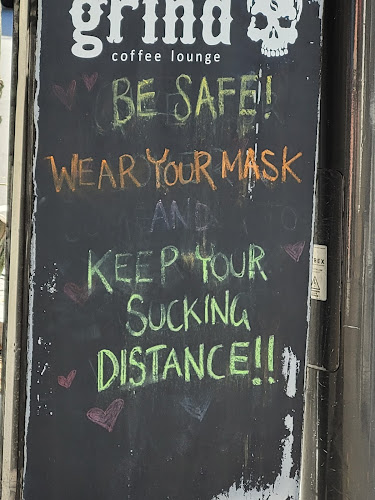 grind
coffee lounge
BE SAFE!
WEAR YOUR MASK
AND
KEEP YOUR
SUCKING
DISTANCE!!